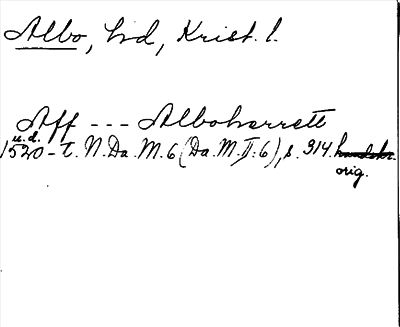 Albo, hd, Krist. l.
Aff --- Alboharrett
u.d.
1520-t. N.Da.M. 6 (Da.M.II:6), s. 314. handskr.
orig.